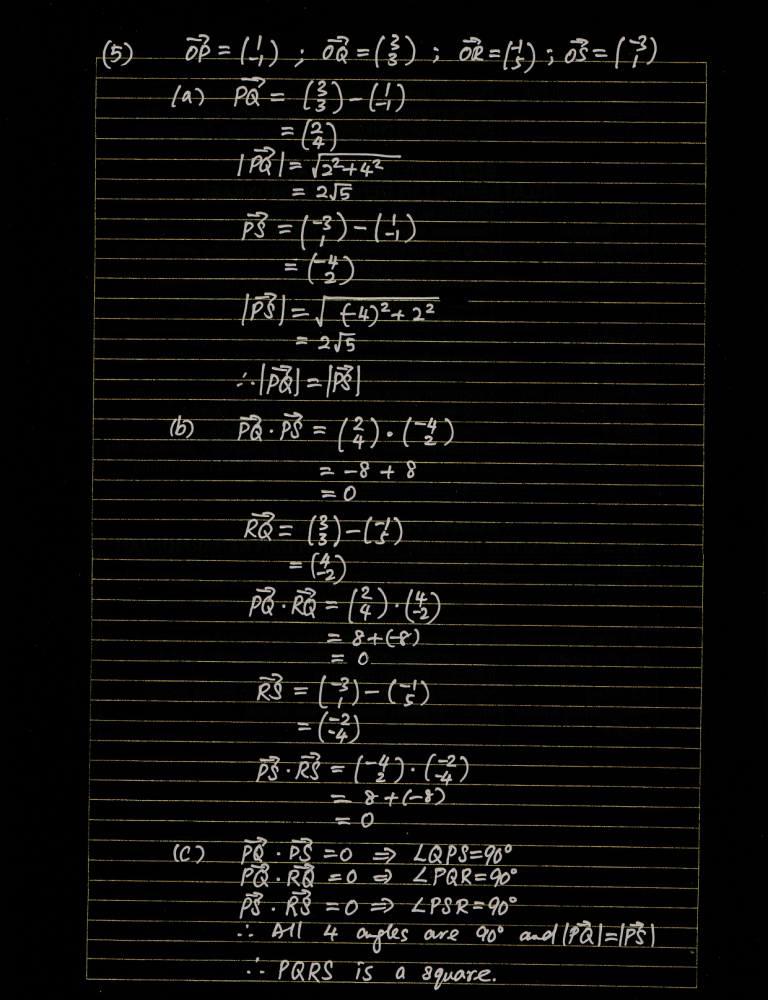 (5) $\overrightarrow{OP} = \begin{pmatrix} 1 \\ -1 \end{pmatrix}$ ; $\overrightarrow{OQ} = \begin{pmatrix} 3 \\ 3 \end{pmatrix}$ ; $\overrightarrow{OR} = \begin{pmatrix} -1 \\ 5 \end{pmatrix}$ ; $\overrightarrow{OS} = \begin{pmatrix} -3 \\ 1 \end{pmatrix}$
(a) $\overrightarrow{PQ} = \begin{pmatrix} 3 \\ 3 \end{pmatrix} - \begin{pmatrix} 1 \\ -1 \end{pmatrix}$
$= \begin{pmatrix} 2 \\ 4 \end{pmatrix}$
$|\overrightarrow{PQ}| = \sqrt{2^2 + 4^2}$
$= 2\sqrt{5}$
$\overrightarrow{PS} = \begin{pmatrix} -3 \\ 1 \end{pmatrix} - \begin{pmatrix} 1 \\ -1 \end{pmatrix}$
$= \begin{pmatrix} -4 \\ 2 \end{pmatrix}$
$|\overrightarrow{PS}| = \sqrt{(-4)^2 + 2^2}$
$= 2\sqrt{5}$
$\therefore |\overrightarrow{PQ}| = |\overrightarrow{PS}|$
(b) $\overrightarrow{PQ} \cdot \overrightarrow{PS} = \begin{pmatrix} 2 \\ 4 \end{pmatrix} \cdot \begin{pmatrix} -4 \\ 2 \end{pmatrix}$
$= -8 + 8$
$= 0$
$\overrightarrow{RQ} = \begin{pmatrix} 3 \\ 3 \end{pmatrix} - \begin{pmatrix} -1 \\ 5 \end{pmatrix}$
$= \begin{pmatrix} 4 \\ -2 \end{pmatrix}$
$\overrightarrow{PQ} \cdot \overrightarrow{RQ} = \begin{pmatrix} 2 \\ 4 \end{pmatrix} \cdot \begin{pmatrix} 4 \\ -2 \end{pmatrix}$
$= 8 + (-8)$
$= 0$
$\overrightarrow{RS} = \begin{pmatrix} -3 \\ 1 \end{pmatrix} - \begin{pmatrix} -1 \\ 5 \end{pmatrix}$
$= \begin{pmatrix} -2 \\ -4 \end{pmatrix}$
$\overrightarrow{PS} \cdot \overrightarrow{RS} = \begin{pmatrix} -4 \\ 2 \end{pmatrix} \cdot \begin{pmatrix} -2 \\ -4 \end{pmatrix}$
$= 8 + (-8)$
$= 0$
(c) $\overrightarrow{PQ} \cdot \overrightarrow{PS} = 0 \Rightarrow \angle QPS = 90°$
$\overrightarrow{PQ} \cdot \overrightarrow{RQ} = 0 \Rightarrow \angle PQR = 90°$
$\overrightarrow{PS} \cdot \overrightarrow{RS} = 0 \Rightarrow \angle PSR = 90°$
$\therefore$ All 4 angles are 90° and $|\overrightarrow{PQ}| = |\overrightarrow{PS}|$
$\therefore$ PQRS is a square.